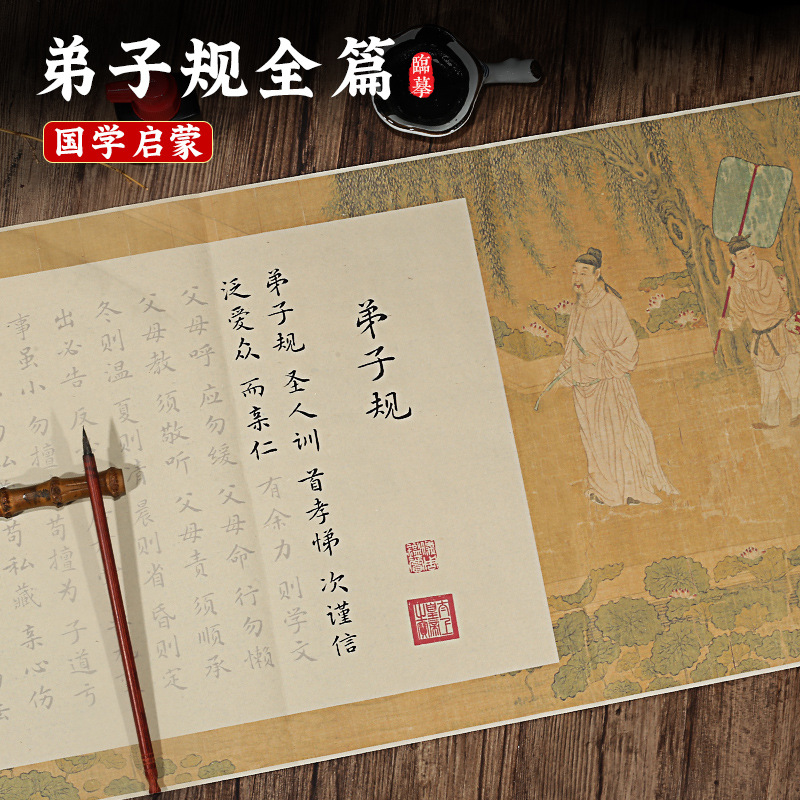 弟子规全篇
臨摹
国学启蒙
弟子规
弟子规 圣人训 首孝悌 次谨信
泛爱众 而亲仁 有余力 则学文
父母呼 应勿缓 父母命 行勿懒
父母教 须敬听 父母责 须顺承
冬则温 夏则 晨则省 昏则定
出必告 反
事虽小 勿擅 苟擅为 子道亏
私 苟私藏 亲心伤